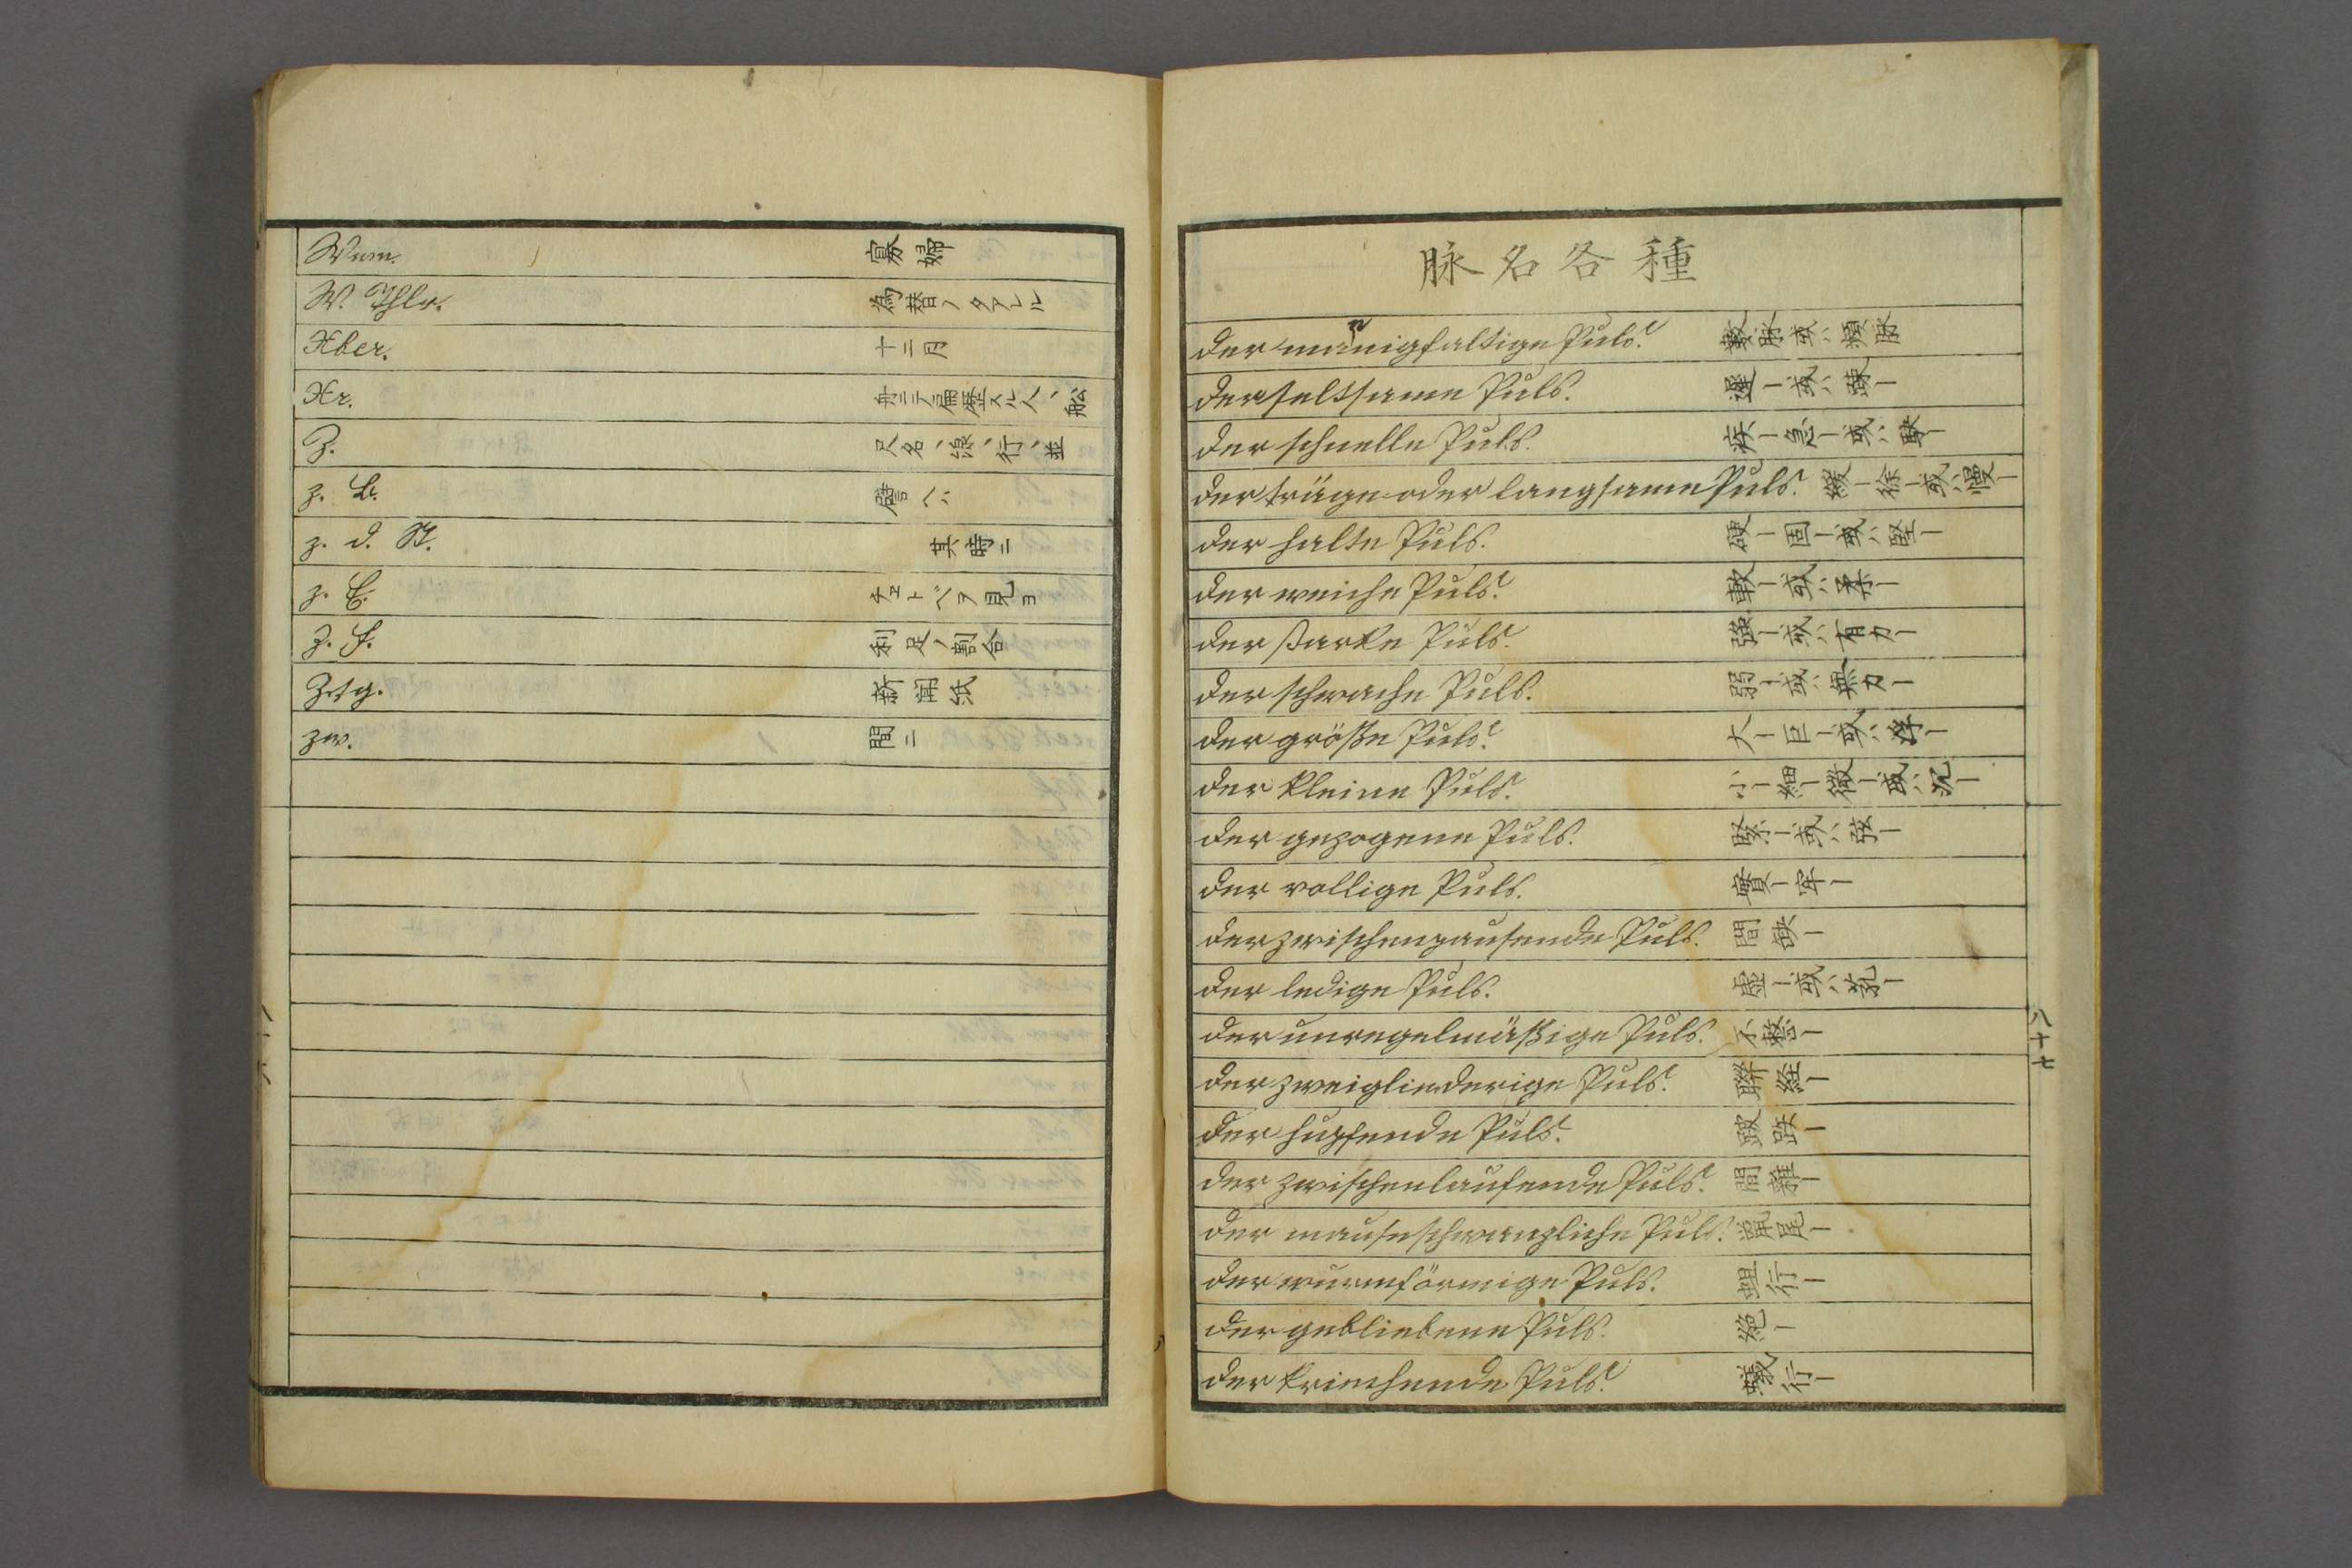 Wwm. 寡婦
W. Thlr. 為替ノタアレル
Xber. 十二月
Xr. 舟ニテ偏歴スル人、舩
Z. 尺名、線、行、並
z. B. 譬ヘハ
z. d. St. 其時ニ
z. E. チェトベヲ見ヨ
Z. F. 利足ノ割合
Ztg. 新聞紙
zw. 間ニ
脉名各種
der mannigfaltige Puls. 數脉或ハ頻脉
der seltsame Puls. 遲ー或ハ踈ー
der schnelle Puls. 疾ー急ー或ハ駛ー
der träge oder langsame Puls. 緩ー徐ー或ハ慢ー
der halte Puls. 硬ー固ー或ハ堅ー
der weiche Puls. 軟ー或ハ柔ー
der starke Puls. 強ー或ハ有力ー
der schwache Puls. 弱ー或ハ無力ー
der größe Puls. 大ー巨ー或ハ浮ー
der kleine Puls. 小ー細ー微ー或ハ沉ー
der gezogene Puls. 緊ー或ハ弦ー
der vollige Puls. 實ー牢ー
der zwischenpausende Puls. 間歇ー
der ledige Puls. 虚ー或ハ芤ー
der unregelmäßige Puls. 不整ー
der zweigliederige Puls. 聯経ー
der hupfende Puls. 跛跌ー
der zwischenlaufende Puls. 間雜ー
der mauseschwanzliche Puls. 鼠尾ー
der wurmförmige Puls. 蚯行ー
der gebliebene Puls. 絶ー
der kriechende Puls. 蟻行ー
八十七